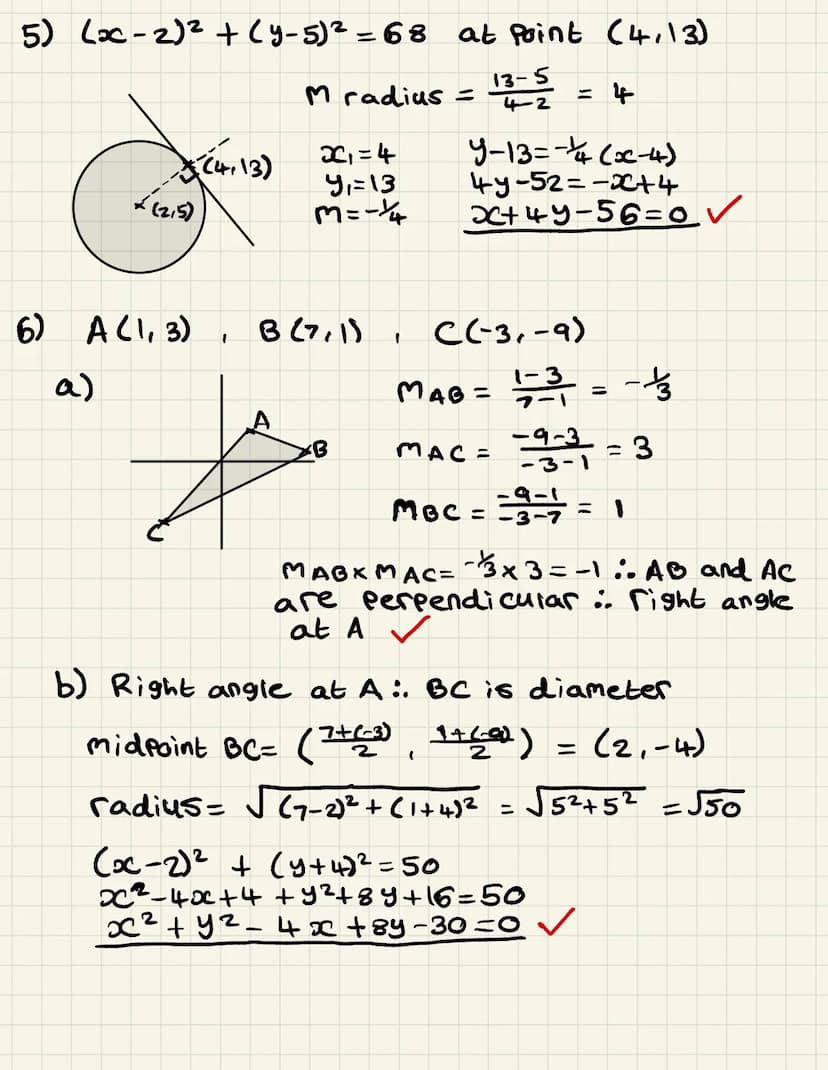 5) (x-2)² + (y-5)² = 68 at point (4,13)
m radius = 13-5/4-2 = 4
(4,13)
(2,5)
x₁=4
y₁=13
m=-¼
y-13=-¼(x-4)
4y-52=-x+4
x+4y-56=0 ✓
6) A(1,3) , B(7,1) , C(-3,-9)
a)
A
B
C
mAB = 1-3/7-1 = -⅓
mAC = -9-3/-3-1 = 3
mBC = -9-1/-3-7 = 1
mAB × mAC = -⅓ × 3 = -1 ∴ AB and AC
are perpendicular ∴ right angle
at A ✓
b) Right angle at A ∴ BC is diameter
midpoint BC = (7+(-3)/2 , 1+(-9)/2) = (2,-4)
radius = √(7-2)² + (1+4)² = √5²+5² = √50
(x-2)² + (y+4)² = 50
x²-4x+4 + y²+8y+16=50
x² + y² - 4x + 8y - 30 = 0 ✓